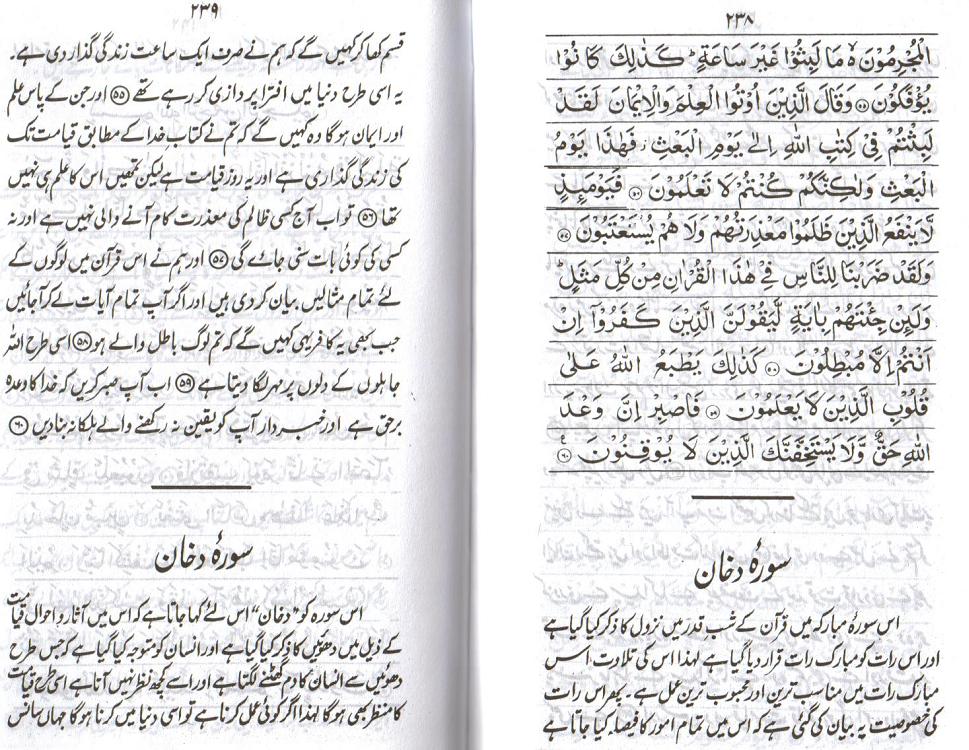 ۲۳۸
الْمُجْرِمُوْنَ ە مَا لَبِثُوْا غَيْرَ سَاعَةٍ ؕ كَذٰلِكَ كَانُوْا
يُؤْفَكُوْنَ ﴿۵۵﴾ وَقَالَ الَّذِيْنَ اُوْتُوا الْعِلْمَ وَالْاِيْمَانَ لَقَدْ
لَبِثْتُمْ فِيْ كِتٰبِ اللّٰهِ اِلٰى يَوْمِ الْبَعْثِ ؗ فَهٰذَا يَوْمُ
الْبَعْثِ وَلٰكِنَّكُمْ كُنْتُمْ لَا تَعْلَمُوْنَ ﴿۵۶﴾ فَيَوْمَئِذٍ
لَّا يَنْفَعُ الَّذِيْنَ ظَلَمُوْا مَعْذِرَتُهُمْ وَلَا هُمْ يُسْتَعْتَبُوْنَ ﴿۵۷﴾
وَلَقَدْ ضَرَبْنَا لِلنَّاسِ فِيْ هٰذَا الْقُرْاٰنِ مِنْ كُلِّ مَثَلٍ ؕ
وَلَئِنْ جِئْتَهُمْ بِاٰيَةٍ لَّيَقُوْلَنَّ الَّذِيْنَ كَفَرُوْٓا اِنْ
اَنْتُمْ اِلَّا مُبْطِلُوْنَ ﴿۵۸﴾ كَذٰلِكَ يَطْبَعُ اللّٰهُ عَلٰى
قُلُوْبِ الَّذِيْنَ لَا يَعْلَمُوْنَ ﴿۵۹﴾ فَاصْبِرْ اِنَّ وَعْدَ
اللّٰهِ حَقٌّ وَّلَا يَسْتَخِفَّنَّكَ الَّذِيْنَ لَا يُوْقِنُوْنَ ﴿۶۰﴾
سورۂ دخان
اس سورۂ مبارکہ میں قرآن کے شب قدر میں نزول کا ذکر کیا گیا ہے
اور اس رات کو مبارک رات قرار دیا گیا ہے لہٰذا اس کی تلاوت اس
مبارک رات میں مناسب ترین اور محبوب ترین عمل ہے۔ پھر اس رات
کی خصوصیت یہ بیان کی گئی ہے کہ اس میں تمام امور کا فیصلہ کیا جاتا ہے
۲۳۹
قسم کھا کر کہیں گے کہ ہم نے صرف ایک ساعت زندگی گذار دی ہے۔
یہ اسی طرح دنیا میں افترا پردازی کر رہے تھے ﴿۵۵﴾ اور جن کے پاس علم
اور ایمان ہو گا وہ کہیں گے کہ تم نے کتاب خدا کے مطابق قیامت تک
کی زندگی گذاری ہے اور یہ روز قیامت ہے لیکن تمھیں اس کا علم ہی نہیں
تھا ﴿۵۶﴾ تو اب آج کسی ظالم کی معذرت کام آنے والی نہیں ہے اور نہ
کسی کی کوئی بات سنی جائے گی ﴿۵۷﴾ اور ہم نے اس قرآن میں لوگوں کے
لئے تمام مثالیں بیان کر دی ہیں اور اگر آپ تمام آیات لے کر آجائیں
جب بھی یہ کافر یہی کہیں گے کہ تم لوگ باطل والے ہو ﴿۵۸﴾ اسی طرح اللہ
جاہلوں کے دلوں پر مہر لگا دیتا ہے ﴿۵۹﴾ اب آپ صبر کریں کہ خدا کا وعدہ
برحق ہے اور خبردار آپ کو یقین نہ رکھنے والے ہلکا نہ بنا دیں ﴿۶۰﴾
سورۂ دخان
اس سورہ کو "دخان" اس لئے کہا جاتا ہے کہ اس میں آثار و احوال قیامت
کے ذیل میں دھوئیں کا ذکر کیا گیا ہے اور انسان کو متوجہ کیا گیا ہے کہ جس طرح
دھوئیں سے انسان کا دم گھٹنے لگتا ہے اور اسے کچھ نظر نہیں آتا ہے اسی طرح قیامت
کا منظر بھی ہو گا لہٰذا اگر کوئی عمل کرنا ہے تو اسی دنیا میں کرنا ہو گا جہاں سانس